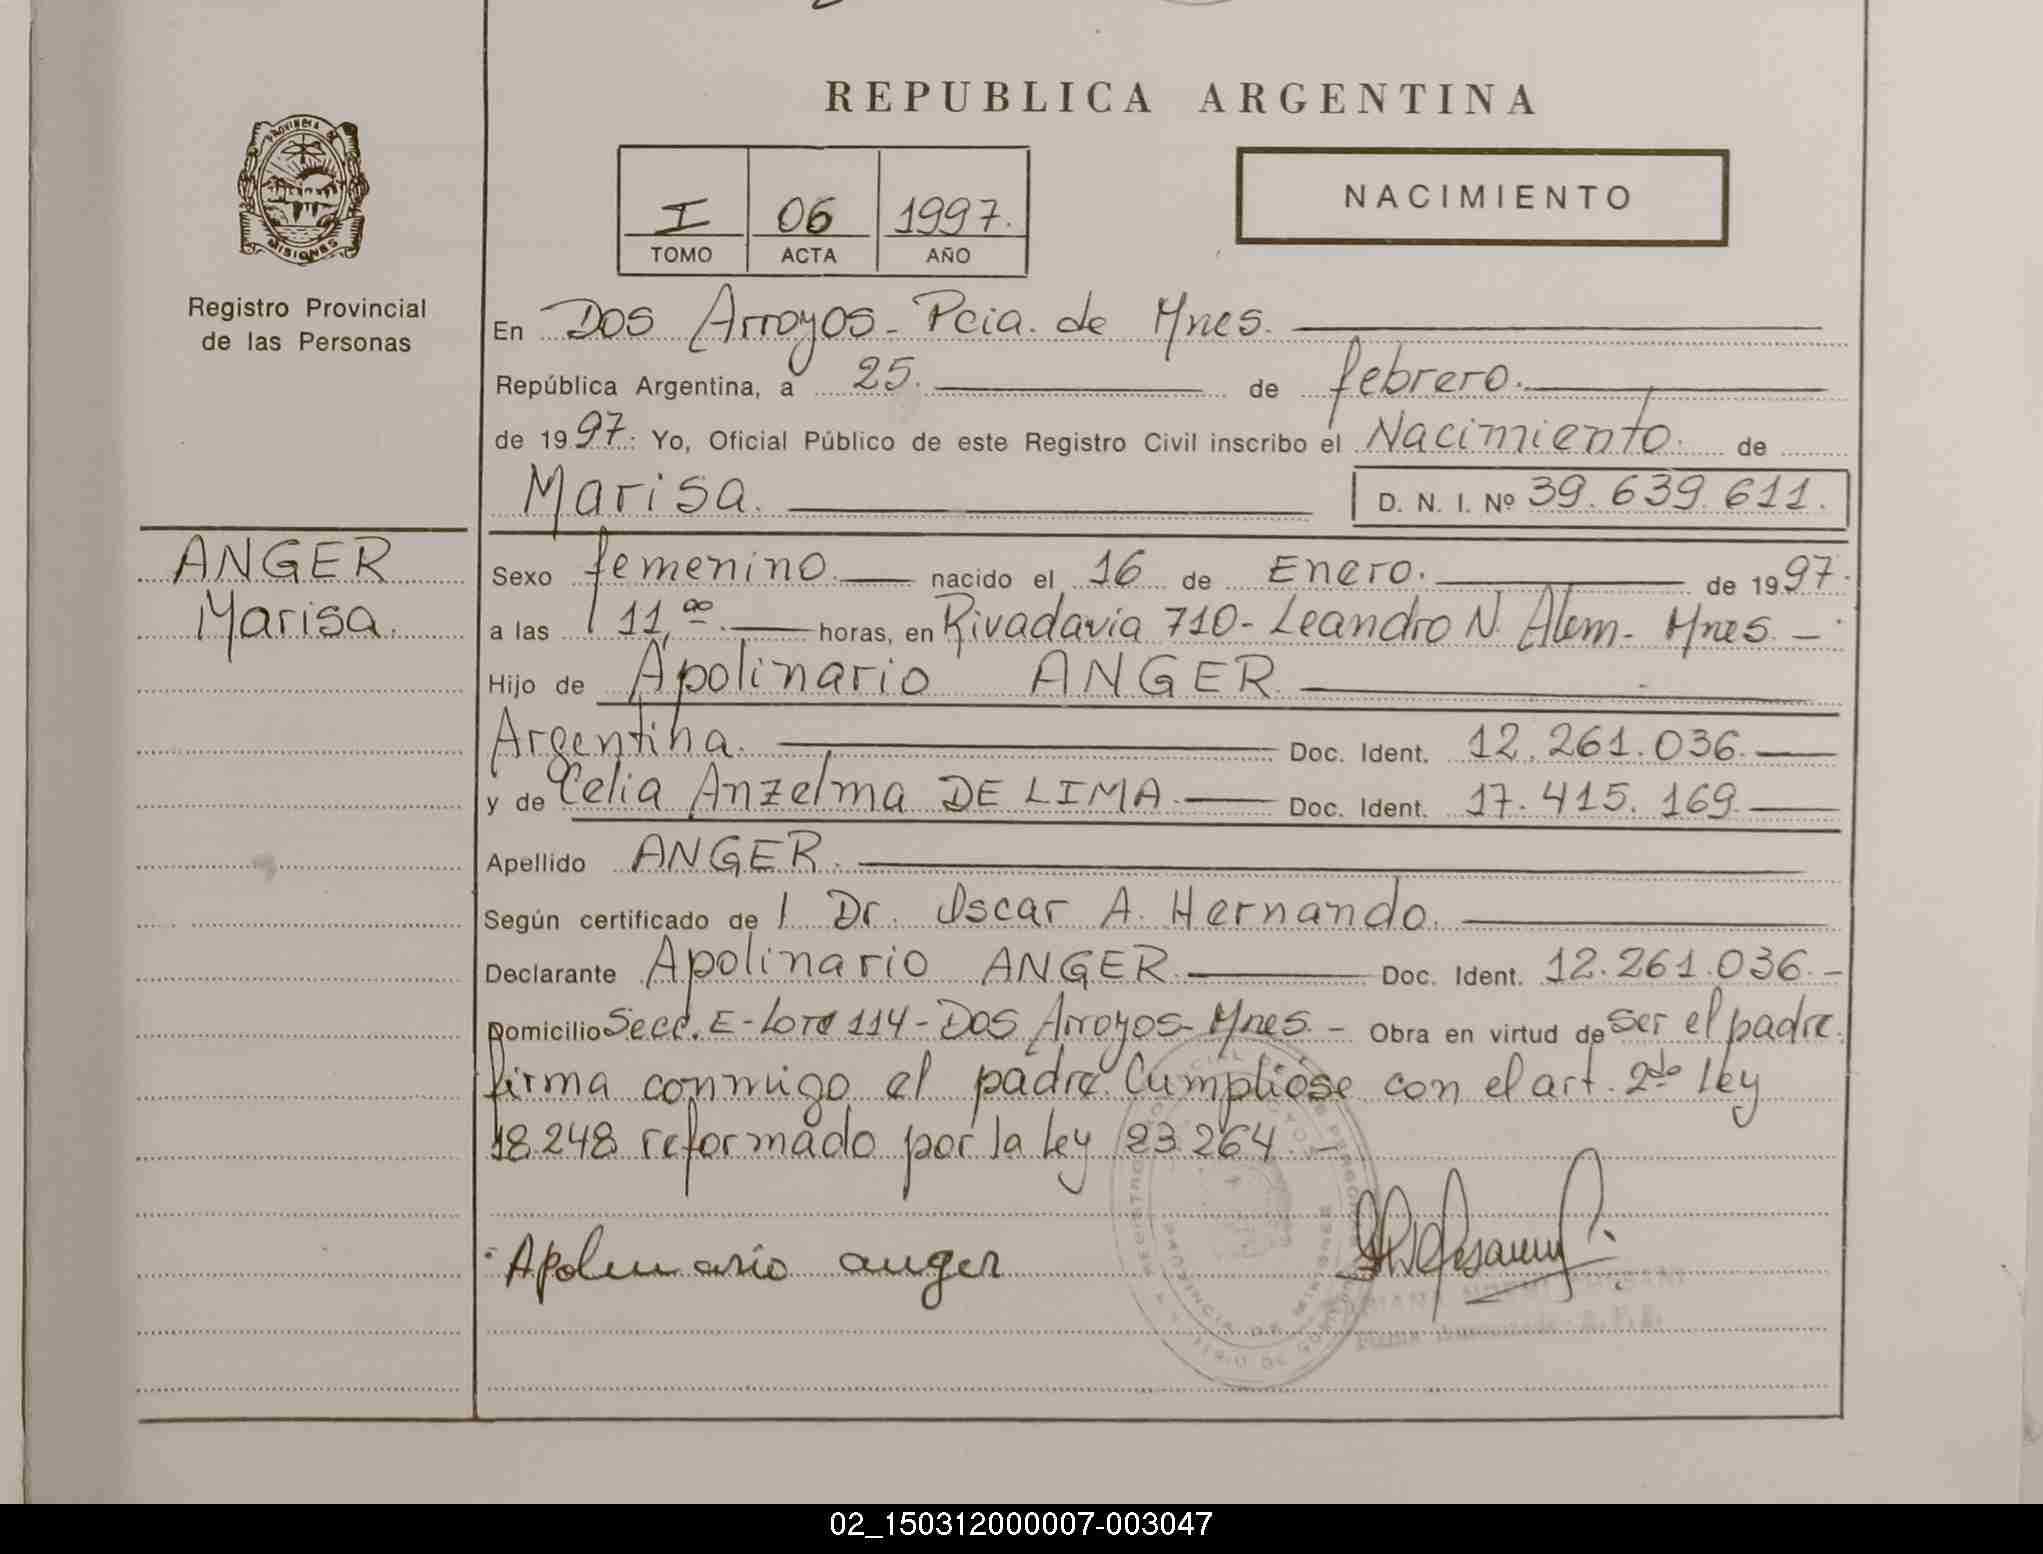 REPUBLICA ARGENTINA
PROVINCIA DE
MISIONES
Registro Provincial
de las Personas
I 06 1997.
TOMO ACTA AÑO
NACIMIENTO
En Dos Arroyos - Pcia. de Mnes.
República Argentina, a 25. de febrero.
de 1997: Yo, Oficial Público de este Registro Civil inscribo el Nacimiento. de
Marisa. D. N. I. Nº 39.639.611.
ANGER
Marisa.
Sexo femenino. nacido el 16 de Enero. de 1997.
a las 11,00. horas, en Rivadavia 710 - Leandro N. Alem - Mnes. -
Hijo de Apolinario ANGER
Argentina. Doc. Ident. 12.261.036.
y de Celia Anzelma DE LIMA. Doc. Ident. 17.415.169
Apellido ANGER.
Según certificado de l Dr. Oscar A. Hernando.
Declarante Apolinario ANGER. Doc. Ident. 12.261.036. -
Domicilio Secc. E - Lote 114 - Dos Arroyos - Mnes. - Obra en virtud de ser el padre.
firma conmigo el padre. Cumpliose con el art. 2do ley
18.248 reformado por la ley 23.264. -
Apolinario anger
PROVINCIA DE MISIONES
02_150312000007-003047